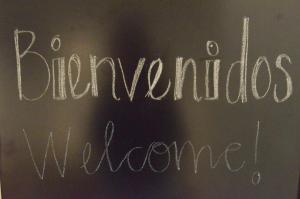 Bienvenidos
Welcome!